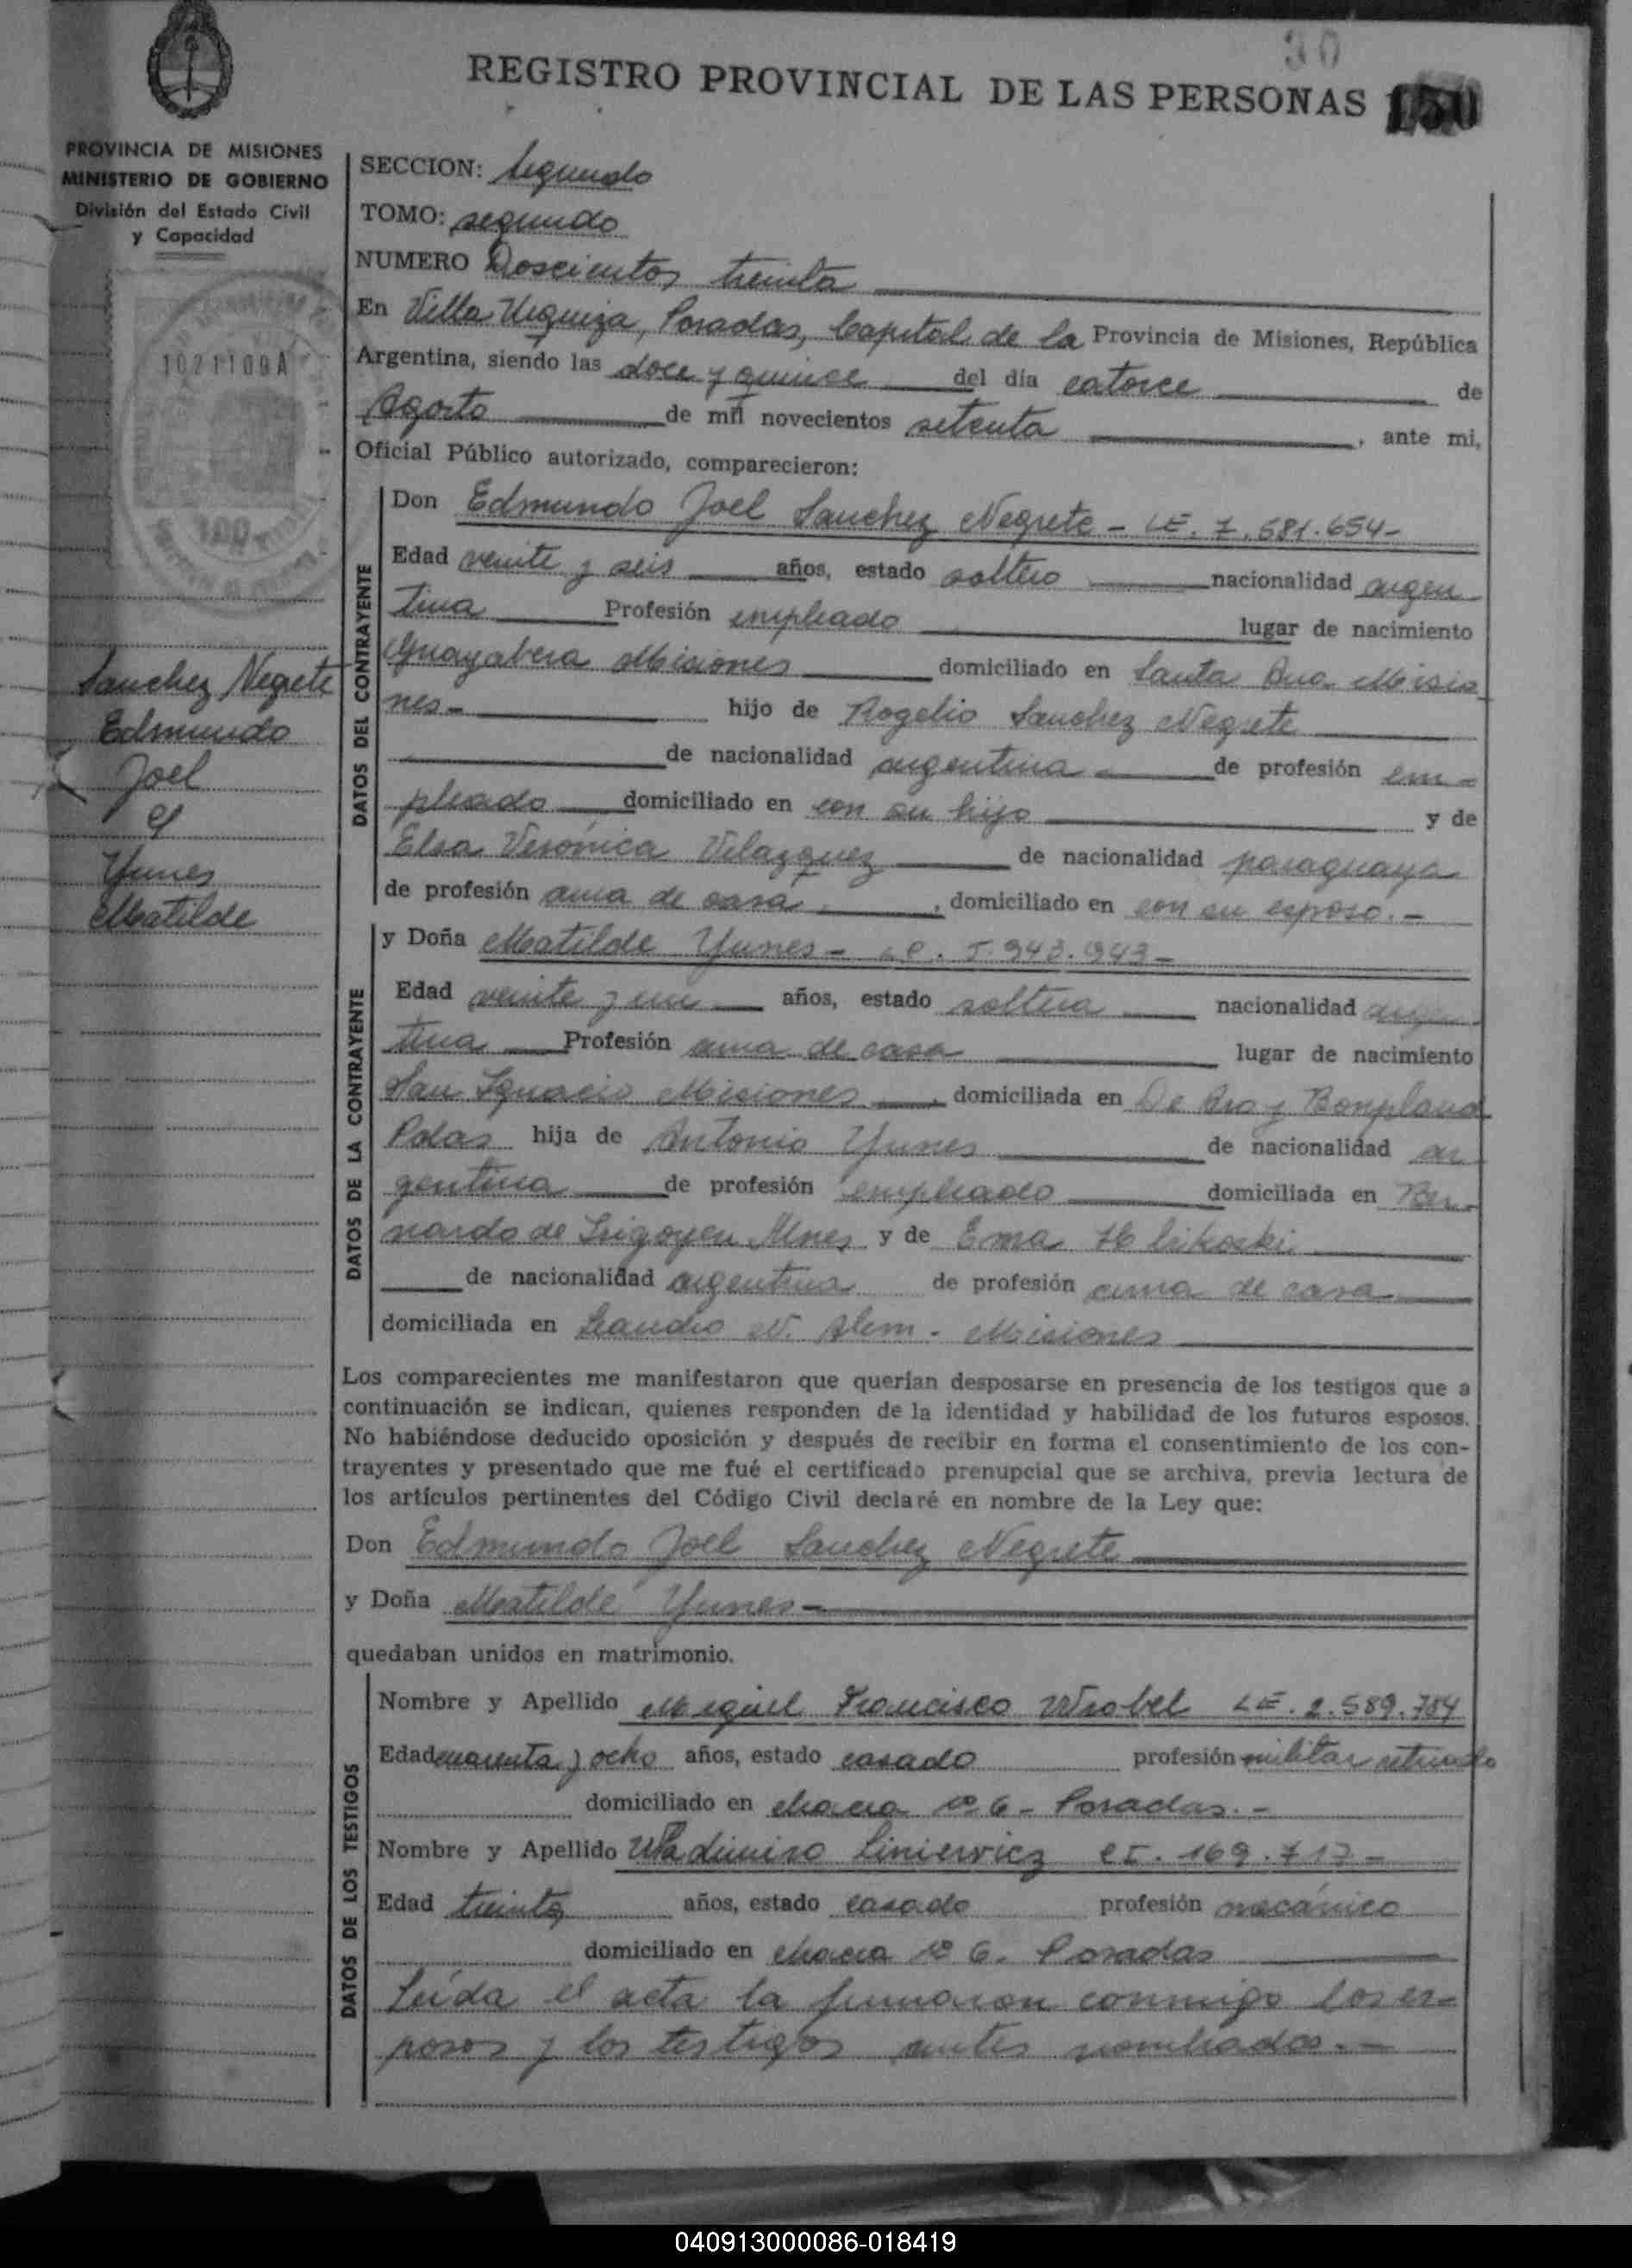 30
REGISTRO PROVINCIAL DE LAS PERSONAS 150
PROVINCIA DE MISIONES
MINISTERIO DE GOBIERNO
División del Estado Civil
y Capacidad
1021109A
100
SECCION: Segundo
TOMO: segundo
NUMERO Doscientos treinta
En Villa Urquiza, Posadas, Capital de la Provincia de Misiones, República
Argentina, siendo las doce y quince del día catorce de
Agosto de mil novecientos setenta, ante mi,
Oficial Público autorizado, comparecieron:
Sanchez Negrete
Edmundo
Joel
y
Yunes
Matilde
DATOS DEL CONTRAYENTE
Don Edmundo Joel Sanchez Negrete - LE. 7.581.654-
Edad veinte y seis años, estado soltero nacionalidad argen
tina Profesión empleado lugar de nacimiento
Guayabera Misiones domiciliado en Santa Ana Misio
nes- hijo de Rogelio Sanchez Negrete
de nacionalidad argentina de profesión em-
pleado domiciliado en con su hijo y de
Elsa Verónica Velazquez de nacionalidad paraguaya
de profesión ama de casa, domiciliado en con su esposo.-
DATOS DE LA CONTRAYENTE
y Doña Matilde Yunes - 943-
Edad veinte y un años, estado soltera nacionalidad argen
tina Profesión ama de casa lugar de nacimiento
San Ignacio Misiones, domiciliada en De Bro y Bonpland
Pdas hija de Antonio Yunes de nacionalidad ar
gentina de profesión empleado domiciliada en Ber-
nardo de Irigoyen Mnes y de Ema
de nacionalidad argentina de profesión ama de casa
domiciliada en Leandro N. Alem - Misiones
Los comparecientes me manifestaron que querían desposarse en presencia de los testigos que a
continuación se indican, quienes responden de la identidad y habilidad de los futuros esposos.
No habiéndose deducido oposición y después de recibir en forma el consentimiento de los con-
trayentes y presentado que me fué el certificado prenupcial que se archiva, previa lectura de
los artículos pertinentes del Código Civil declaré en nombre de la Ley que:
Don Edmundo Joel Sanchez Negrete
y Doña Matilde Yunes-
quedaban unidos en matrimonio.
DATOS DE LOS TESTIGOS
Nombre y Apellido Miguel Francisco Wrobel LE. 2.589.784
Edad cuarenta y ocho años, estado casado profesión militar retirado
domiciliado en chacra nº 6 - Posadas.-
Nombre y Apellido Wladimiro Liniewicz CI. 169.717-
Edad treinta años, estado casado profesión mecánico
domiciliado en chacra nº 6. Posadas
Leída el acta la firmaron conmigo los es-
posos y los testigos antes nombrados.-
040913000086-018419